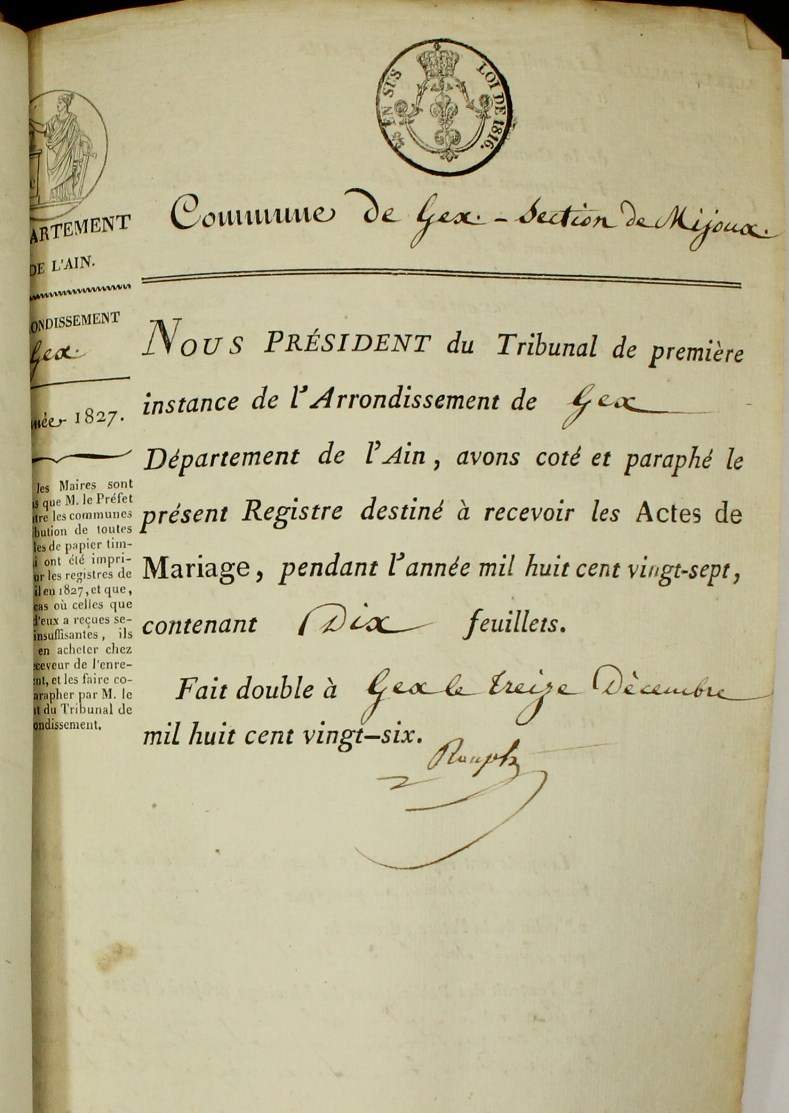 EN SUS LOI DE 1816.
Commune de Gex. - Section de Mijoux.
ARTEMENT
DE L'AIN.
ONDISSEMENT
Gex.
née 1827.
les Maires sont
s que M. le Préfet
tre les communes
bution de toutes
les de papier tim-
i ont été impri-
ur les registres de
il en 1827, et que,
cas où celles que
d'eux a reçues se-
insuffisantes, ils
en acheter chez
ceveur de l'enre-
nt, et les faire co-
arapher par M. le
t du Tribunal de
ondissement.
NOUS PRÉSIDENT du Tribunal de première
instance de l'Arrondissement de Gex
Département de l'Ain, avons coté et paraphé le
présent Registre destiné à recevoir les Actes de
Mariage, pendant l'année mil huit cent vingt-sept,
contenant Dix feuillets.
Fait double à Gex le treize Décembre
mil huit cent vingt-six.